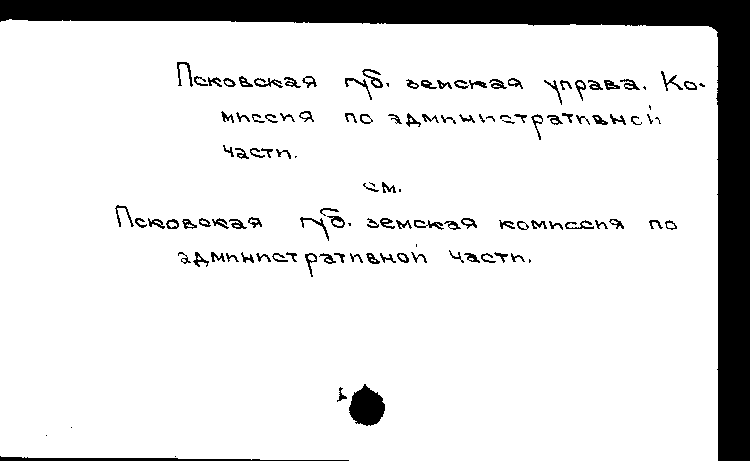 Псковская губ. земская управа. Ко-
миссия по административной
части.
см.
Псковская губ. земская комиссия по
административной части.